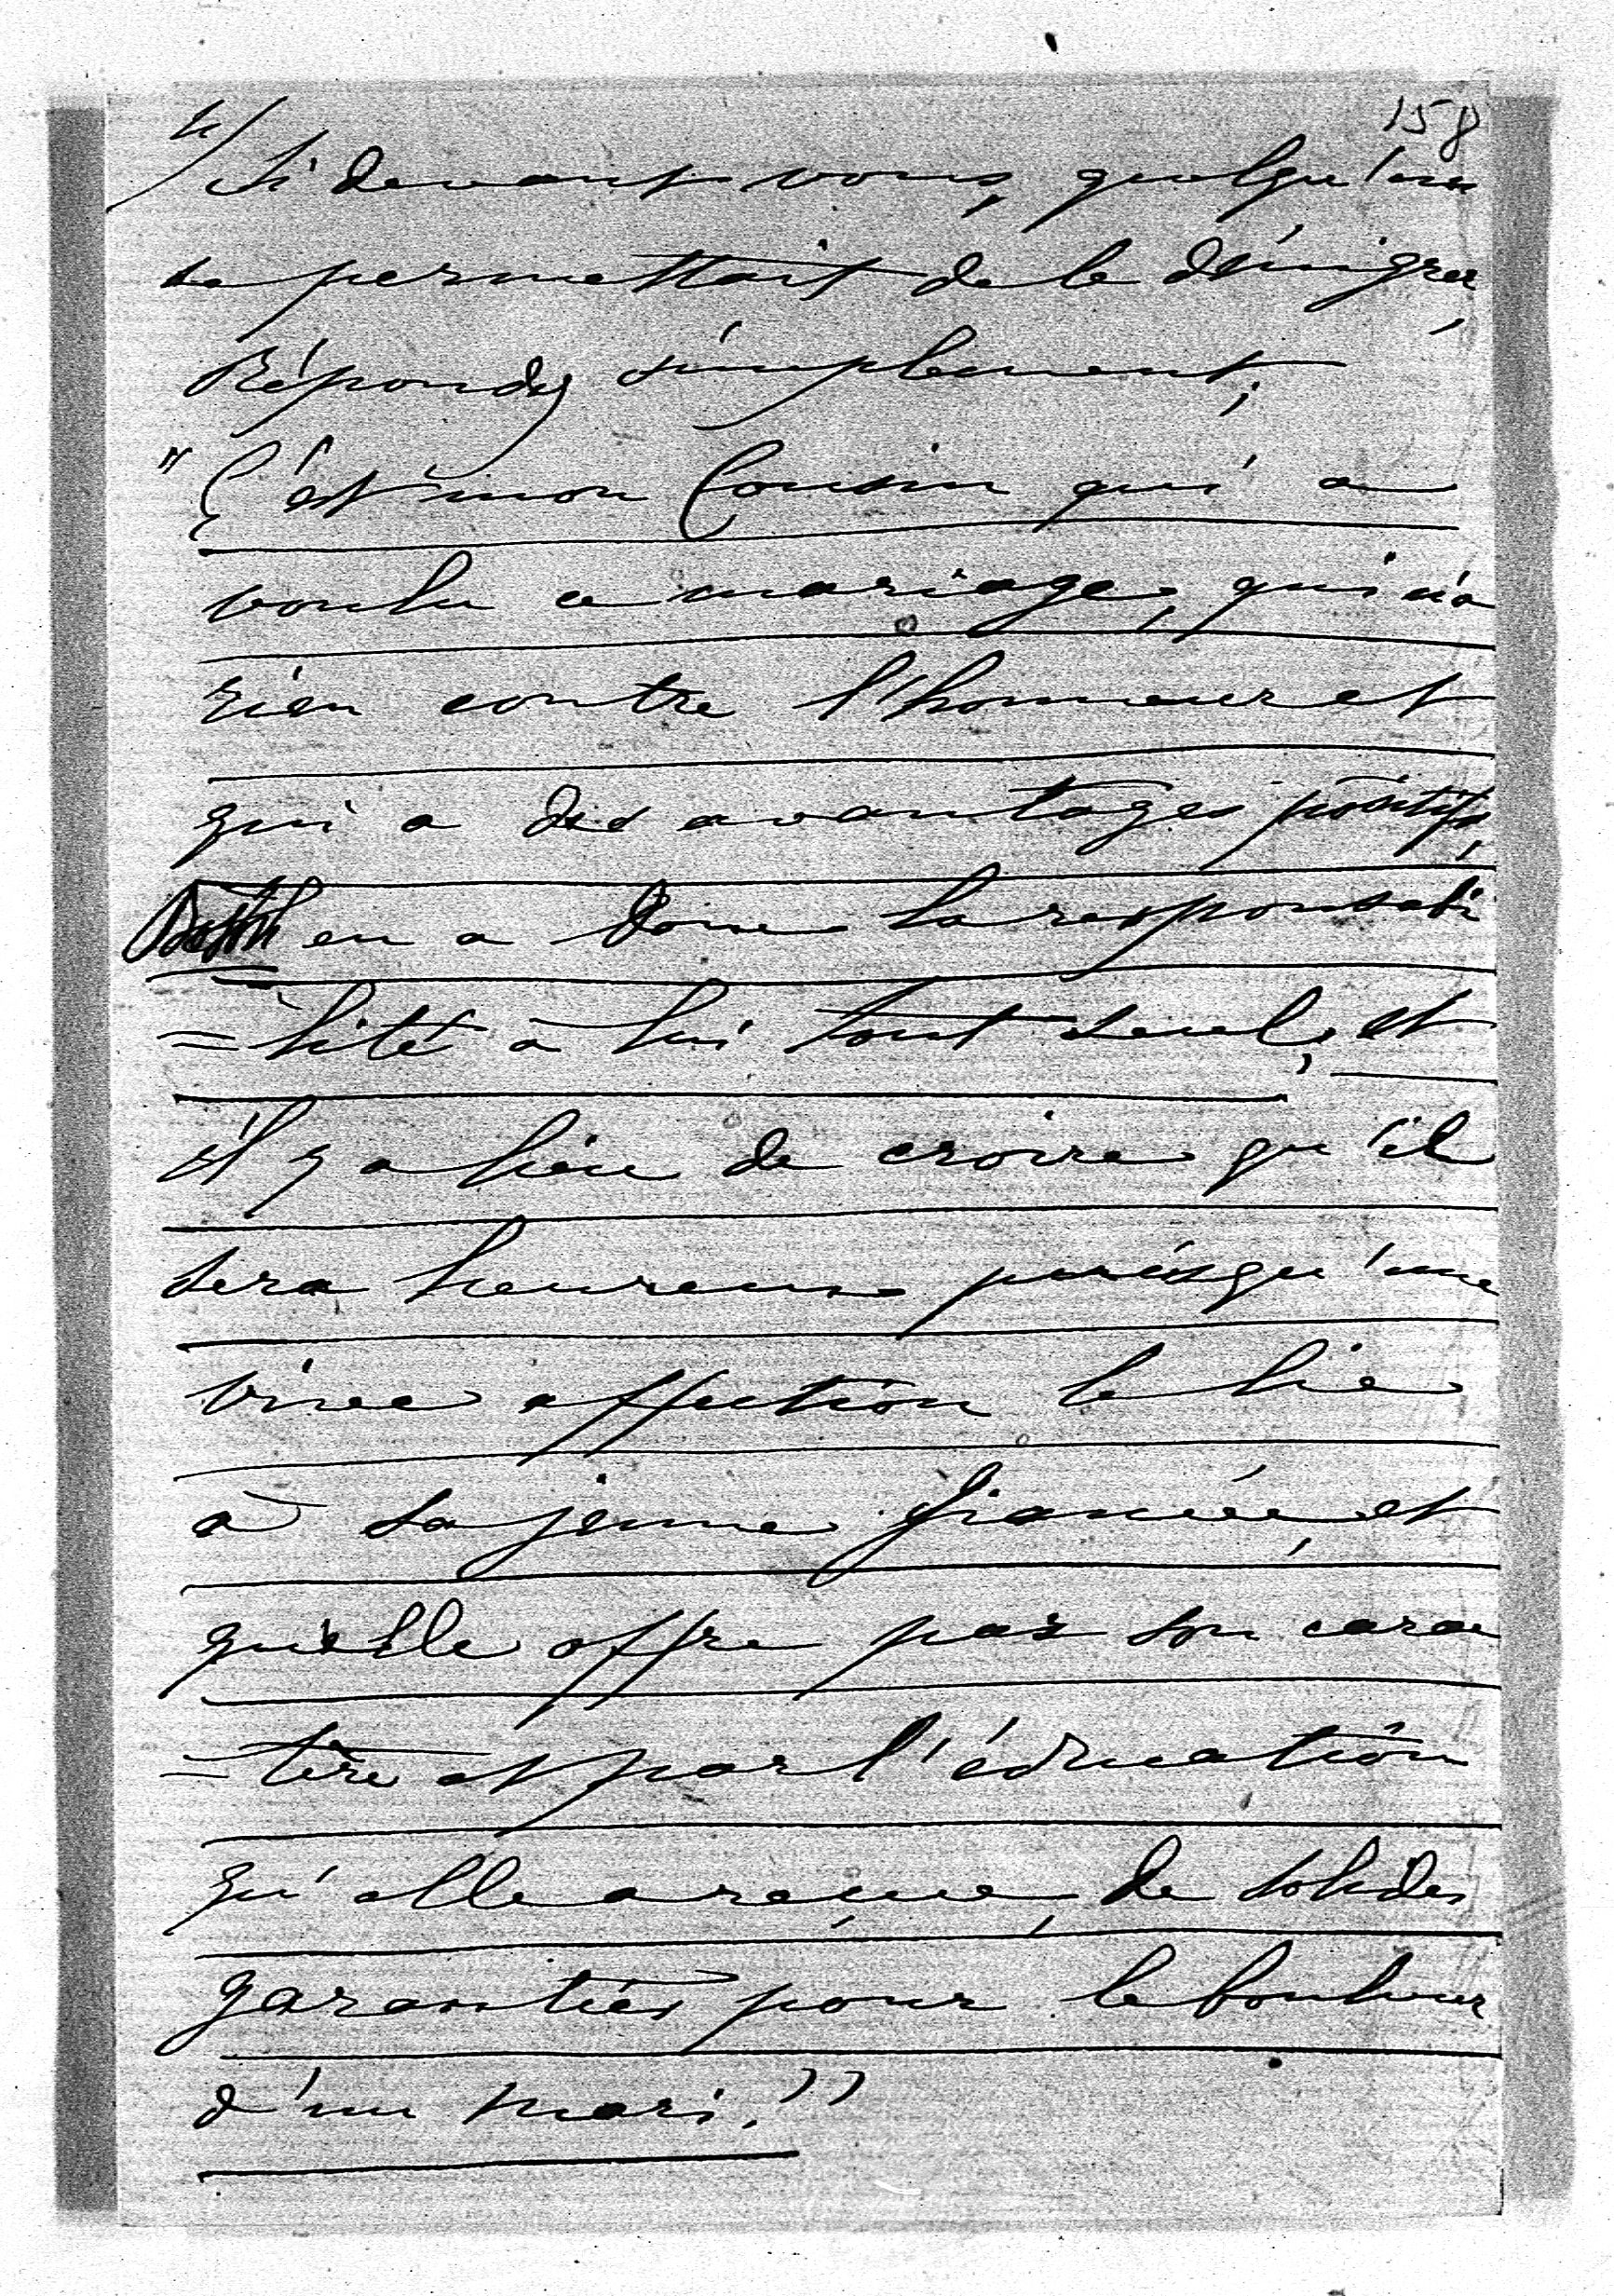 158
4/ Si devant vous, quelqu'un
se permettait de le dénigrer,
Répondez simplement;
"C'est mon Cousin qui a
voulu ce mariage, qui n'a
rien contre l'honneur et
qui a des avantages positifs,
en a donc la responsabi
=lité à lui tout seul, et
il y a lieu de croire qu'il
sera heureux puisqu'une
vive affection le lie
à sa jeune fiancée, et
qu'elle offre par son carac
=tère et par l'éducation
qu'elle a reçue, de solides
garanties pour le bonheur
d'un mari."